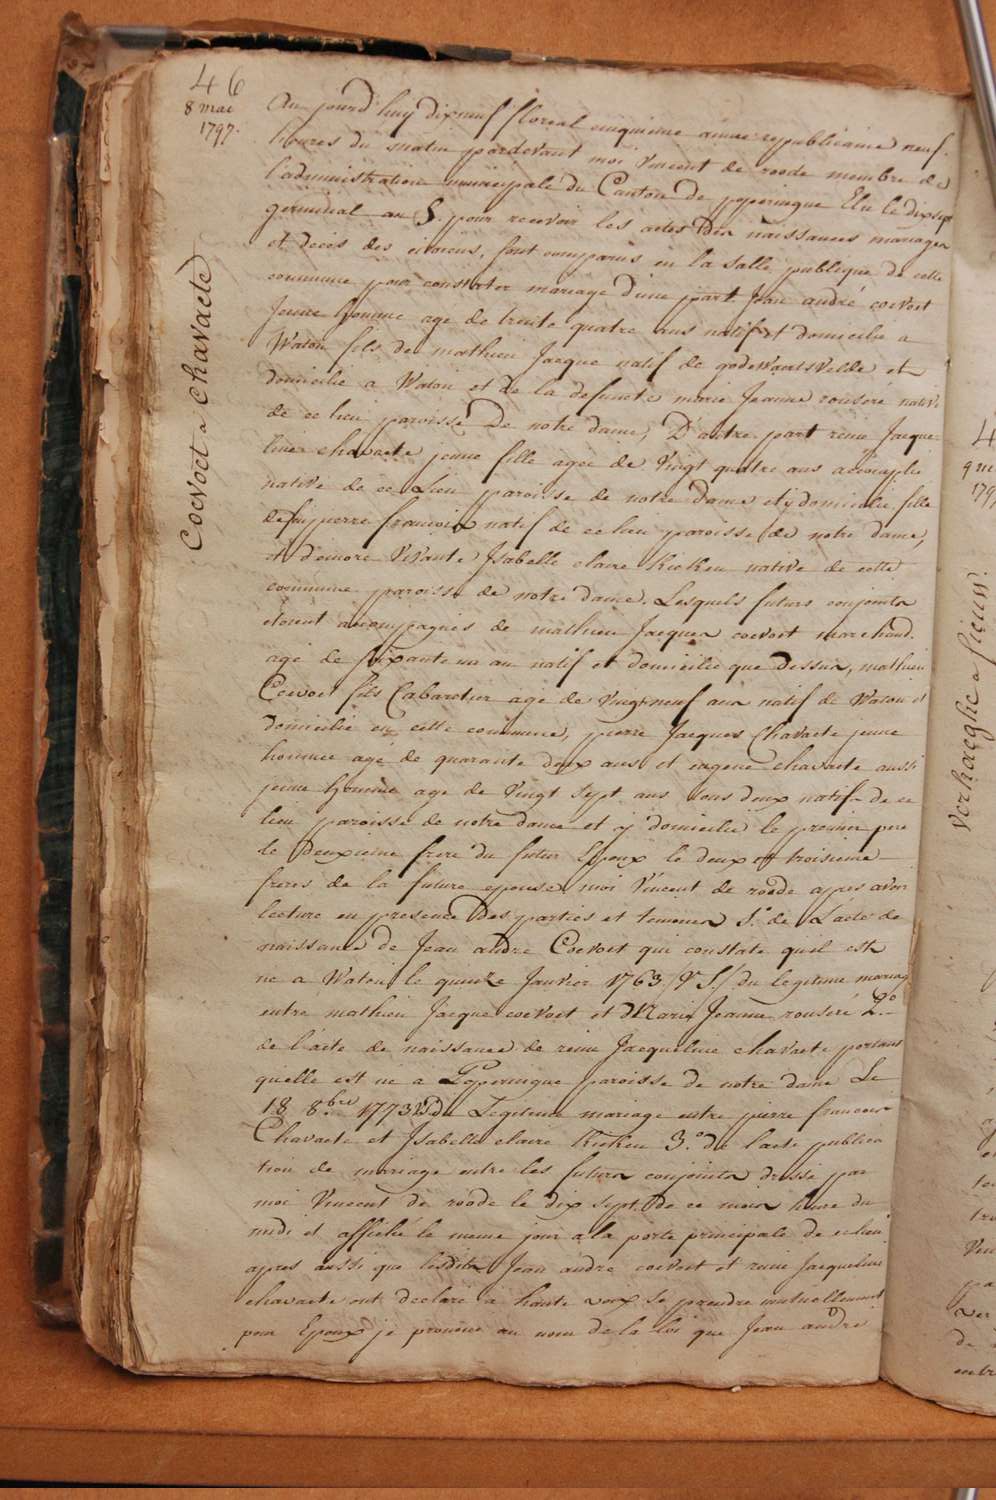 46
8 mai
1797.
Coevoet & Chavaete
Au jourd'huy dixneuf floreal cinquieme année republicaine neuf
heures du matin pardevant moi Vincent de roode membre de
l'administration municipale du Canton de poperingue Elu le dixsept
germinal an 5. pour recevoir les actes des naissances mariages
et deces des citoiens, sont comparus en la salle publique de cette
commune pour constater mariage d'une part Jean andré coevoet
Jeune homme age de trente quatre ans natif et domicilie a
Watou fils de mathieu Jacque natif de godewaersvelde et
domicilie a Watou et de la defuncte marie Jeanne rouseré native
de ce lieu paroisse De notre dame, D'autre part reine Jacque
line chavaete jeune fille agée de Vingt quatre ans accomplie
native de ce Lieu paroisse de notre dame et y domiciliee fille
de feu pierre francois natif de ce lieu paroisse de notre dame,
et d'encore Vivante Isabelle claire Kieken native de cette
commune paroisse de notre dame. Lesquels futurs conjoints
etoient accompagnés de mathieu Jacques coevoet marchand
agé de soixante un an natif et domicilie que dessus, mathieu
Coevoet fils Cabaretier age de Vingt neuf ans natif de Watou et
domicilie en cette commune, pierre Jacques Chavaete jeune
homme agé de quarante deux ans et eugene chavaete aussi
jeune homme age de Vingt sept ans tous deux natifs de ce
lieu paroisse de notre dame et y domicilie le premier pere
le deuxieme frere du futur Epoux le deux et troisieme
freres de la future epouse, moi Vincent de roode apres avoir
lecture en presence Des parties et temoins 1.° de L'acte de
naissance de Jean andre Coevoet qui constate qu'il est
né a Watou le quinze Janvier 1763 /V S/ du legitime mariage
entre mathieu Jacque coevoet et Marie Jeanne rouseré 2.°
de l'acte de naissance de reine Jacqueline chavaete portant
qu'elle est né a Poperingue paroisse de notre dame Le
18 8bre 1773 du Legitime mariage entre pierre francois
Chavaete et Isabelle claire Kieken 3.° de l'acte publica
tion de mariage entre les futurs conjoints dressé par
moi Vincent de roode le dix sept de ce mois heure du
midi et affiché le meme jour a la porte principale de ce lieu
apres aussi que lesdits Jean andré coevoet et reine Jacqueline
chavaete ont declaré a haute voix se prendre mutuellement
pour Epoux je prononce au nom de la loi que Jean andré
4
9 m
179
Verhaeghe & Sieuw.